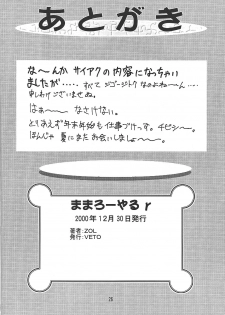 あとがき
な〜んか サイアクの内容になっちゃい
ましたが‥‥‥ すべて ジゴージトク なのよねーん‥‥
申しわけございませぬ。
はぁ〜 なさけない。
とりあえず年末年始も仕事づけっす。チビシー。
ほんじゃ 夏にまた お会いしましょー。
ままろーやるr
2000年12月30日発行
著者:ZOL
発行:VETO
26